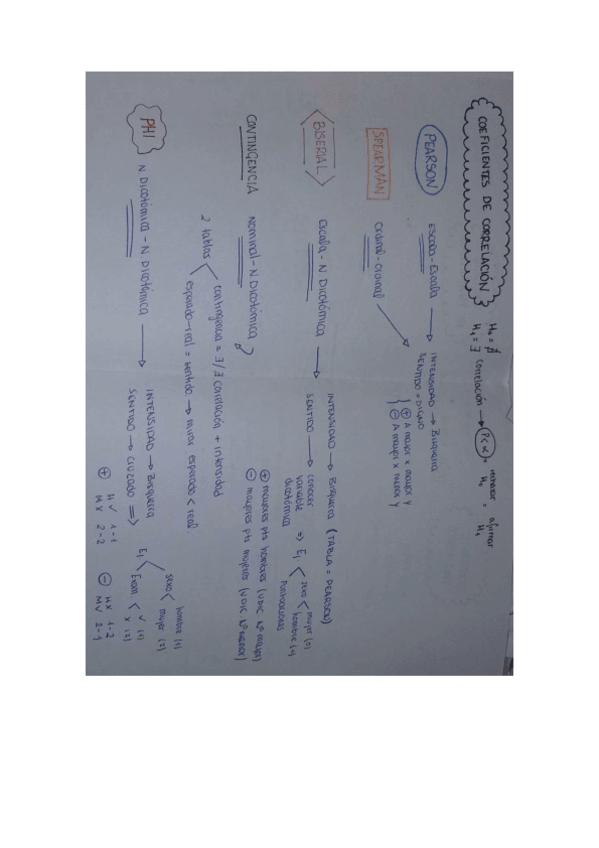 COEFICIENTES DE CORRELACIÓN
H₀ = ∄
H₁ = ∃ correlación → P < α, rechazar H₀ = afirmar H₁
PEARSON
Escala - Escala → INTENSIDAD → Bisquerra
SENTIDO = SIGNO
⊕ A mayor x mayor y
⊖ A mayor x menor y
SPEARMAN
Ordinal - Ordinal
BISERIAL
Escala - N Dicotómica → INTENSIDAD → Bisquerra (TABLA = PEARSON)
SENTIDO → conocer variable dicotómica => Ej < sexo < mujer (0)
hombre (1)
Puntuaciones
⊕ mayores pts hombres (VDIC Nº mayor)
⊖ mayores pts mujeres (VDIC Nº menor)
CONTINGENCIA
Nominal - N Dicotómica
2 tablas < contingencia = ∃/∄ correlación + intensidad
esperado-real = sentido → mirar esperado < real
PHI
N Dicotómica - N Dicotómica → INTENSIDAD → Bisquerra
SENTIDO → cruzado => Ej < sexo < hombre (1)
mujer (2)
Exam < ✓ (1)
x (2)
⊕ H✓ 1-1
Mx 2-2
⊖ Hx 1-2
M✓ 2-1